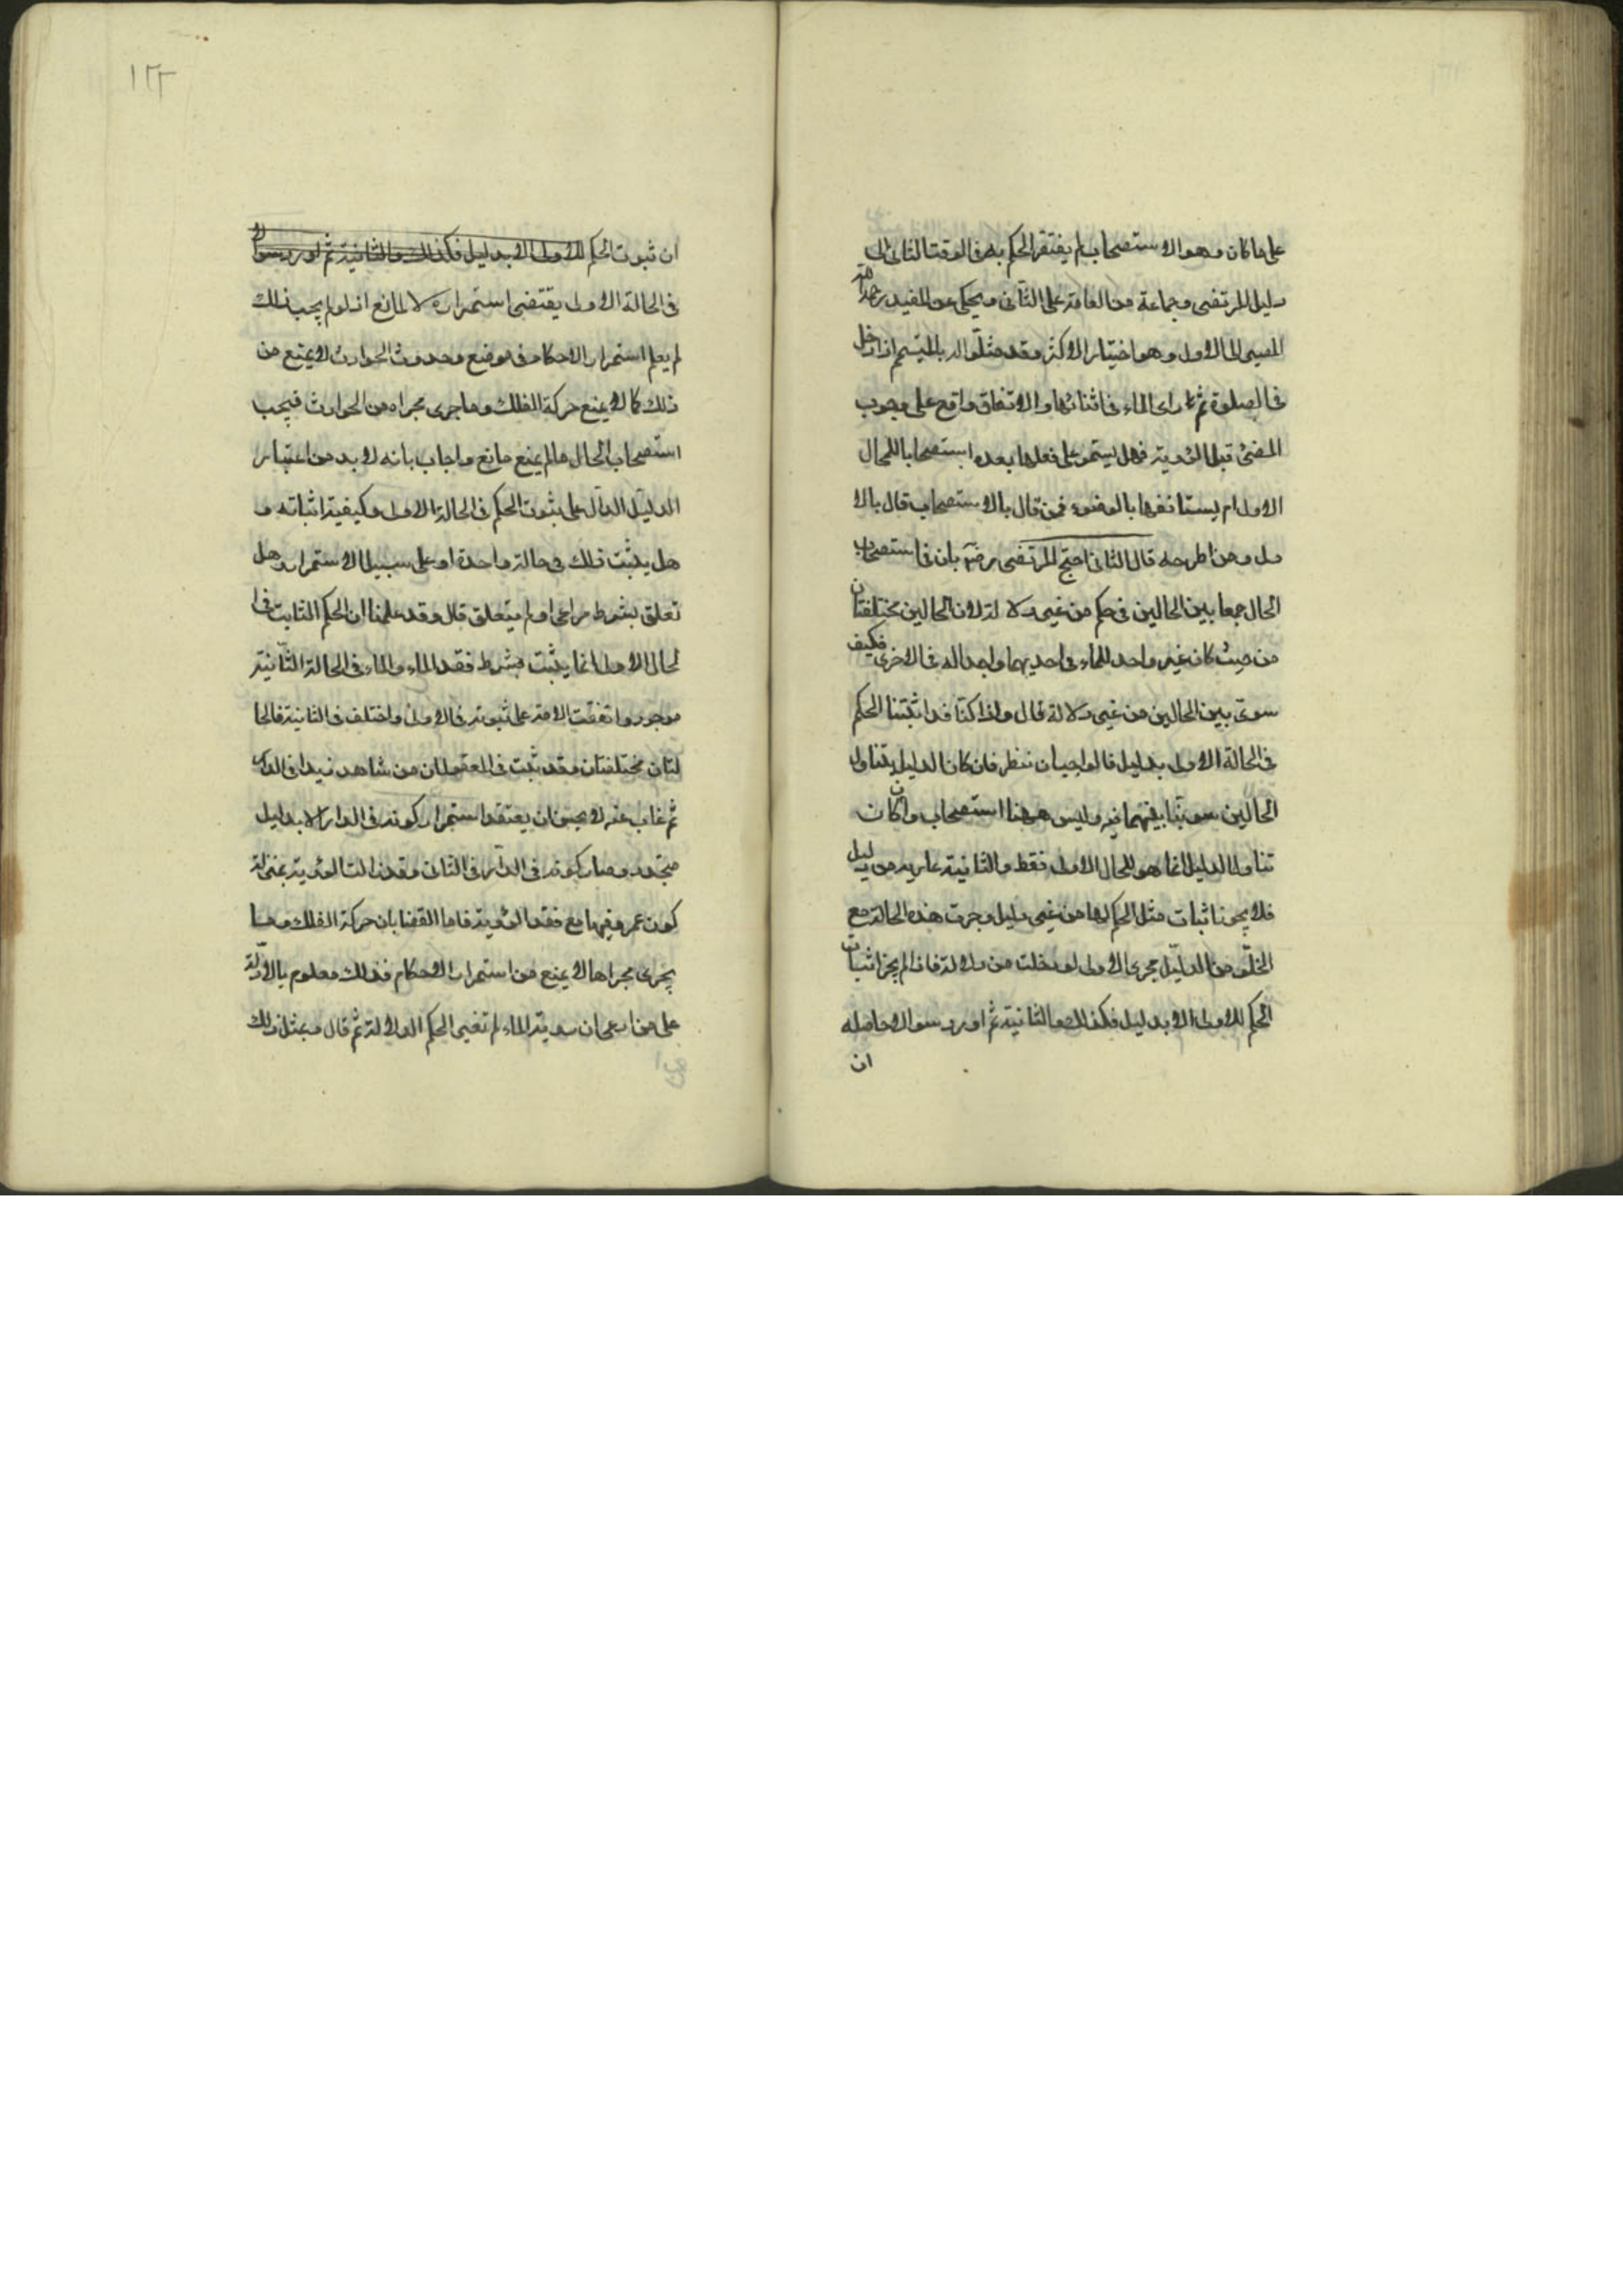 على ما كان وهو الاستصحاب ام يفتقر الحكم به فى الوقت الثانى الى
دليل المرتضى وجماعة من العامة على الثانى ويحكى عن المفيد رحمه الله
المصير الى الاول وهو اختيار الاكثر وقد مثلوا له بالمتيمم اذا دخل
فى الصلوة ثم راى الماء فى اثنائها والاتفاق واقع على وجوب
المضى قبل الرؤية فهل يستمر على فعلها بعده استصحابا للحال
الاول ام يستانفها بالوضوء فمن قال بالاستصحاب قال بالا
ول ومن اطرحه قال الثانى احتج المرتضى رضۀ بان فى استصحاب
الحال جمعا بين الحالين فى حكم من غير دلالة لان الحالين مختلفتان
من حيث كان غير واجد للماء فى احديهما واجدا له فى الاخرى فكيف
سوى بين الحالين من غير دلالة قال واذا كنا قد اثبتنا الحكم
فى الحالة الاولى بدليل فالواجب ان ننظر فان كان الدليل يتناول
الحالين سوينا بينهما فيه وليس ههنا استصحاب وان كان
تناول الدليل انما هو للحال الاولى فقط والثانية عارية من دليل
فلا يجوز اثبات مثل الحكم لها من غير دليل وجرت هذه الحالة مع
الخلو من الدليل مجرى الاولى لو خلت من دلالة فاذا لم يجز اثبات
الحكم للاولى الا بدليل فكذلك الثانية ثم اورد سوالا حاصله
ان
١٢٢
ان ثبوت الحكم للاولى الا بدليل فكذلك والثانية ثم اورد سوالا
فى الحالة الاولى يقتضى استمراره لا لمانع اذ لو لم يجب ذلك
لم يعلم استمرار الاحكام فى موضع وحدوث الحوادث لا يمنع من
ذلك كما لا يمنع حركة الفلك وما جرى مجراه من الحوادث فيجب
استصحاب الحال ما لم يمنع مانع واجاب بانه لا بد من اعتبار
الدليل الدال على ثبوت الحكم فى الحالة الاولى وكيفية اثباته و
هل يثبت ذلك فى حالة واحدة او على سبيل الاستمرار وهل
تعلق بشرط مراعى او لم يتعلق قال وقد علمنا ان الحكم الثابت فى ا
لحال الاولى انما يثبت بشرط فقد الماء والماء فى الحالة الثانية
موجود واتفقت الامة على ثبوته فى الاولى واختلف فى الثانية فالحا
لتان مختلفتان وقد ثبت فى العقول ان من شاهد زيدا فى الدار
ثم غاب عنه لا يحسن ان يعتقد استمرار كونه فى الدار الا بدليل
متجدد وصار كونه فى الدار فى الثانى وقد زالت الرؤية بمنزلة
كون عمرو فيها مع فقد الرؤية فاما القضا بان حركة الفلك وما
يجرى مجراها لا يمنع من استمرار الاحكام فذلك معلوم بالادلة
على من ادعى ان رؤية الماء لم تغير الحكم الدلالة ثم قال وبمثل ذلك